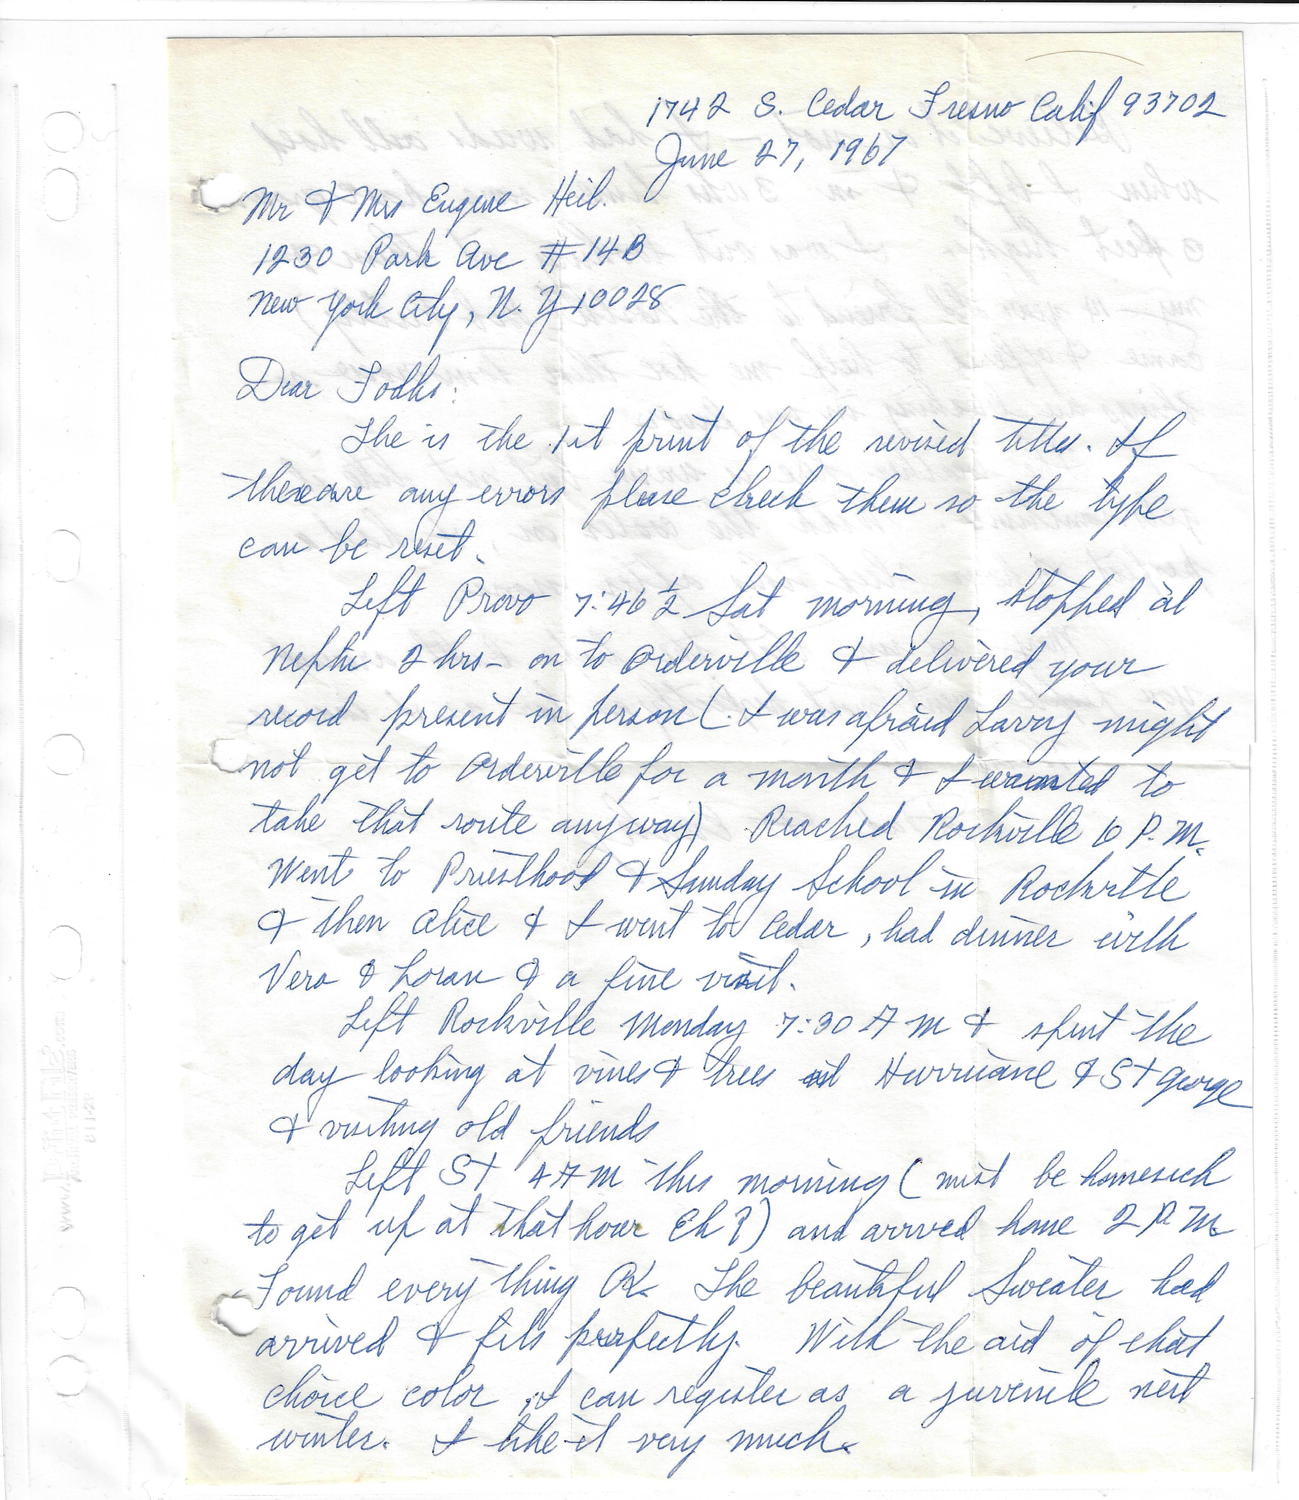 1742 S. Cedar Fresno Calif 93702
June 27, 1967
Mr & Mrs Eugene Heil.
1230 Park Ave #14B
New York City, N.Y 10028
Dear Fodks:
The is the 1st print of the revised titles. If
there are any errors please check them so the type
can be reset.
Left Provo 7:46 1/2 Sat morning, stopped at
Nephi 2 hrs - on to Orderville & delivered your
record present in person (I was afraid Larry might
not get to Orderville for a month & I wanted to
take that route anyway) Reached Rockville 6 P.M.
Went to Priesthood & Sunday School in Rockville
& then Alice & I went to Cedar, had dinner with
Vera & Loran & a fine visit.
Left Rockville Monday 7:30 AM & spent the
day looking at vines & trees at Hurricane & St George
& visiting old friends
Left St 4 AM this morning (must be homesick
to get up at that hour Eh?) and arrived home 2 P.M.
Found everything OK. The beautiful Sweater had
arrived & fits perfectly. With the aid of that
choice color, I can register as a juvenile next
winter. I like it very much.